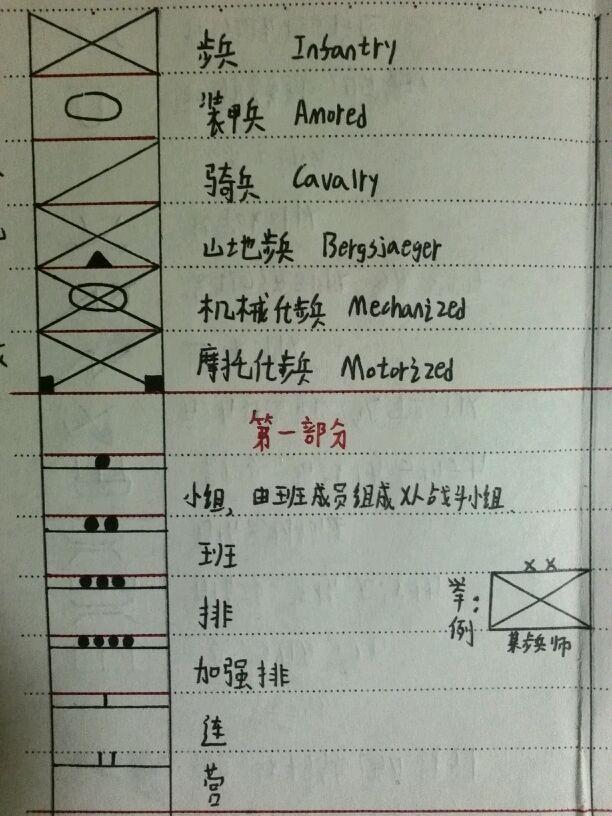 步兵 Infantry
装甲兵 Amored
骑兵 Cavalry
山地步兵 Bergsjaeger
机械化步兵 Mechanized
摩托化步兵 Motorized
第一部分
小组, 由班成员组成X人战斗小组
班
排
举例:
某步兵师
加强排
连
营